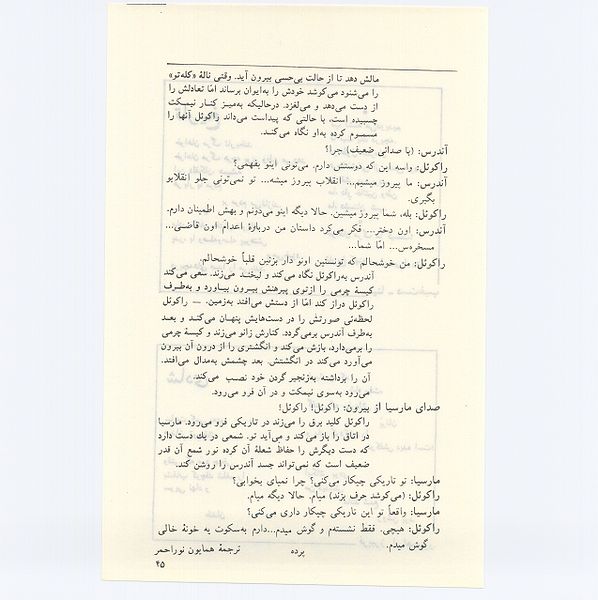 مالش دهد تا از حالت بی‌حسی بیرون آید. وقتی نالهٔ «کله‌تو»
را می‌شنود می‌کوشد خودش را به‌ایوان برساند امّا تعادلش را
از دست می‌دهد و می‌لغزد. درحالیکه به‌میز کنار نیمکت
چسبیده است، با حالتی که پیداست می‌داند راکوئل آنها را
مسموم کرده به‌او نگاه می‌کند.
آندرس: (با صدائی ضعیف) چرا؟
راکوئل: واسه این که دوستش دارم. می‌تونی اینو بفهمی؟
آندرس: ما پیروز میشیم... انقلاب پیروز میشه... تو نمی‌تونی جلو انقلابو
بگیری.
راکوئل: بله، شما پیروز میشین. حالا دیگه اینو می‌دونم و بهش اطمینان دارم.
آندرس: اون دختر... فکر می‌کرد داستان من دربارهٔ اعدام اون قاضی...
مسخره‌س... امّا شما...
راکوئل: من خوشحالم که تونستین اونو دار بزنین قلباً خوشحالم.
آندرس به‌راکوئل نگاه می‌کند و لبخند می‌زند. سعی می‌کند
کیسهٔ چرمی را ازتوی پیرهنش بیرون بیاورد و به‌طرف
راکوئل دراز کند امّا از دستش می‌افتد به‌زمین. — راکوئل
لحظه‌ئی صورتش را در دست‌هایش پنهان می‌کند و بعد
به‌طرف آندرس برمی‌گردد. کنارش زانو می‌زند و کیسهٔ چرمی
را برمی‌دارد، بازش می‌کند و انگشتری را از درون آن بیرون
می‌آورد می‌کند در انگشتش. بعد چشمش به‌مدال می‌افتد.
آن را برداشته به‌زنجیر گردن خود نصب می‌کند.
می‌رود به‌سوی نیمکت و در آن فرو می‌رود.
صدای مارسیا از بیرون: راکوئل! راکوئل!
راکوئل کلید برق را می‌زند در تاریکی فرو می‌رود. مارسیا
در اتاق را باز می‌کند و می‌آید تو. شمعی در یك دست دارد
که دست دیگرش را حفاظ شعلهٔ آن کرده نور شمع آن قدر
ضعیف است که نمی‌تواند جسد آندرس را روشن کند.
مارسیا: تو تاریکی چیکار می‌کنی؟ چرا نمیای بخوابی؟
راکوئل: (می‌کوشد حرف بزند) میام. حالا دیگه میام.
مارسیا: واقعاً تو این تاریکی چیکار داری می‌کنی؟
راکوئل: هیچی. فقط نشستم و گوش میدم...دارم به‌سکوت یه خونهٔ خالی
گوش میدم.
پرده
ترجمهٔ همایون نوراحمر
۴۵